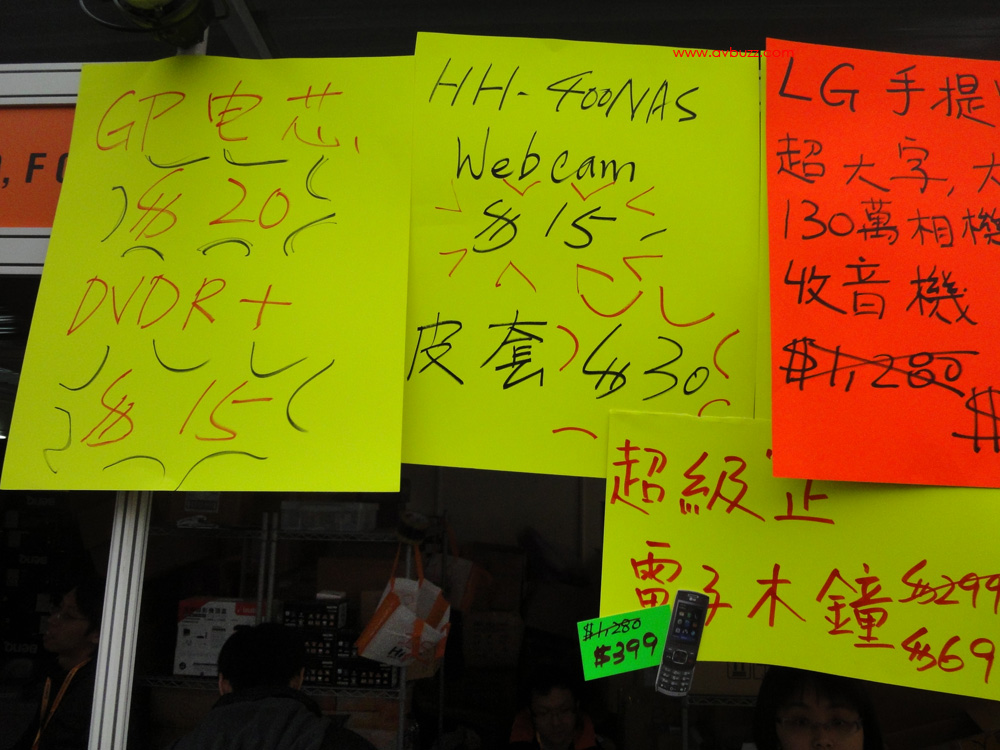 www.avbuzz.com
, F
GP 电芯
$20
DVDR+
$15
HH-400NAS
Webcam
$15
皮套 $30
LG 手提
超大字,
130萬相機
收音機
$1,280
$
超級正
電子木鐘 $299
$69
$1,280
$399